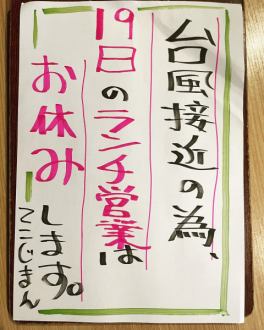 台風接近の為、
19日のランチ営業は
お休みします。
てこじまん